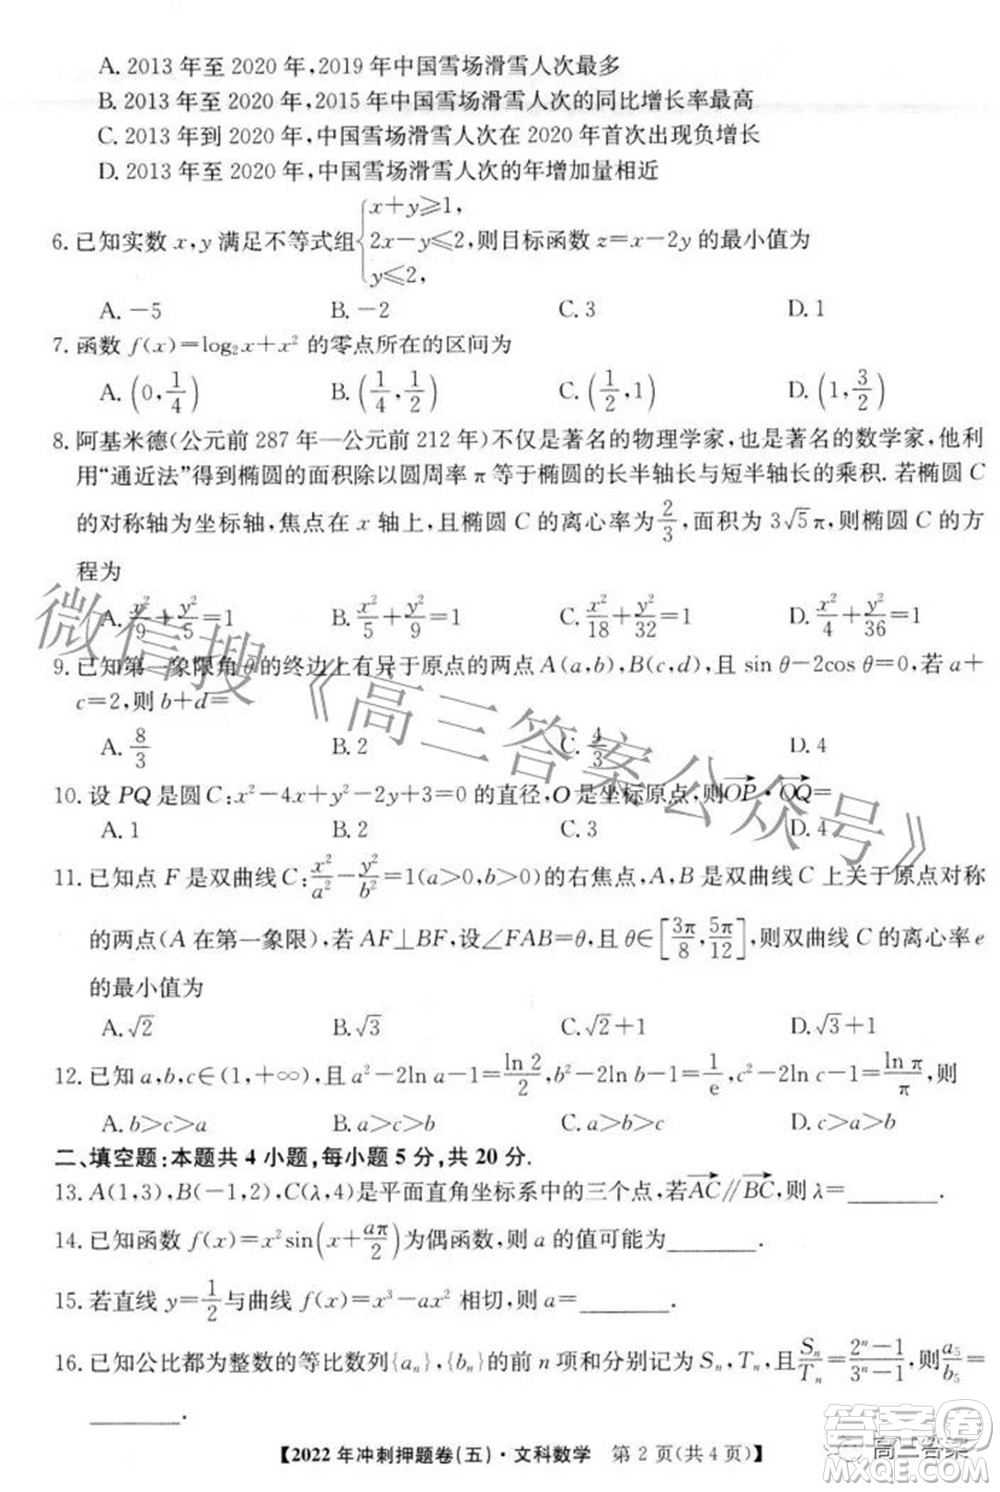 A. 2013 年至 2020 年,2019 年中国雪场滑雪人次最多
B. 2013 年至 2020 年,2015 年中国雪场滑雪人次的同比增长率最高
C. 2013 年到 2020 年,中国雪场滑雪人次在 2020 年首次出现负增长
D. 2013 年至 2020 年,中国雪场滑雪人次的年增加量相近
6. 已知实数 x,y 满足不等式组 {x+y≥1, 2x-y≤2, y≤2, 则目标函数 z=x-2y 的最小值为
A. -5 B. -2 C. 3 D. 1
7. 函数 f(x)=log₂x+x² 的零点所在的区间为
A. (0, 1/4) B. (1/4, 1/2) C. (1/2, 1) D. (1, 3/2)
8. 阿基米德(公元前 287 年—公元前 212 年)不仅是著名的物理学家,也是著名的数学家,他利
用“通近法”得到椭圆的面积除以圆周率 π 等于椭圆的长半轴长与短半轴长的乘积. 若椭圆 C
的对称轴为坐标轴,焦点在 x 轴上,且椭圆 C 的离心率为 2/3,面积为 3√5π,则椭圆 C 的方
程为
A. x²/9+y²/5=1 B. x²/5+y²/9=1 C. x²/18+y²/32=1 D. x²/4+y²/36=1
9. 已知第一象限角 θ 的终边上有异于原点的两点 A(a,b),B(c,d),且 sin θ-2cos θ=0,若 a+
c=2,则 b+d=
A. 8/3 B. 2 C. 4/3 D. 4
10. 设 PQ 是圆 C:x²-4x+y²-2y+3=0 的直径,O 是坐标原点,则 OP→·OQ→=
A. 1 B. 2 C. 3 D. 4
11. 已知点 F 是双曲线 C: x²/a²-y²/b²=1(a>0,b>0) 的右焦点,A,B 是双曲线 C 上关于原点对称
的两点(A 在第一象限),若 AF⊥BF,设∠FAB=θ,且 θ∈[3π/8, 5π/12],则双曲线 C 的离心率 e
的最小值为
A. √2 B. √3 C. √2+1 D. √3+1
12. 已知 a,b,c∈(1,+∞),且 a²-2ln a-1=ln 2/2,b²-2ln b-1=1/e,c²-2ln c-1=ln π/π,则
A. b>c>a B. c>b>a C. a>c>b D. a>b>c
二、填空题:本题共 4 小题,每小题 5 分,共 20 分.
13. A(1,3),B(-1,2),C(λ,4)是平面直角坐标系中的三个点,若AC→∥BC→,则 λ=________.
14. 已知函数 f(x)=x²sin(x+aπ/2)为偶函数,则 a 的值可能为________.
15. 若直线 y=1/2与曲线 f(x)=x³-ax² 相切,则 a=________.
16. 已知公比都为整数的等比数列{aₙ},{bₙ}的前 n 项和分别记为 Sₙ,Tₙ,且Sₙ/Tₙ=(2ⁿ-1)/(3ⁿ-1),则a₅/b₅
________.
【2022 年冲刺押题卷(五)·文科数学 第 2 页(共 4 页)】
微信搜《高三答案公众号》
高三答案